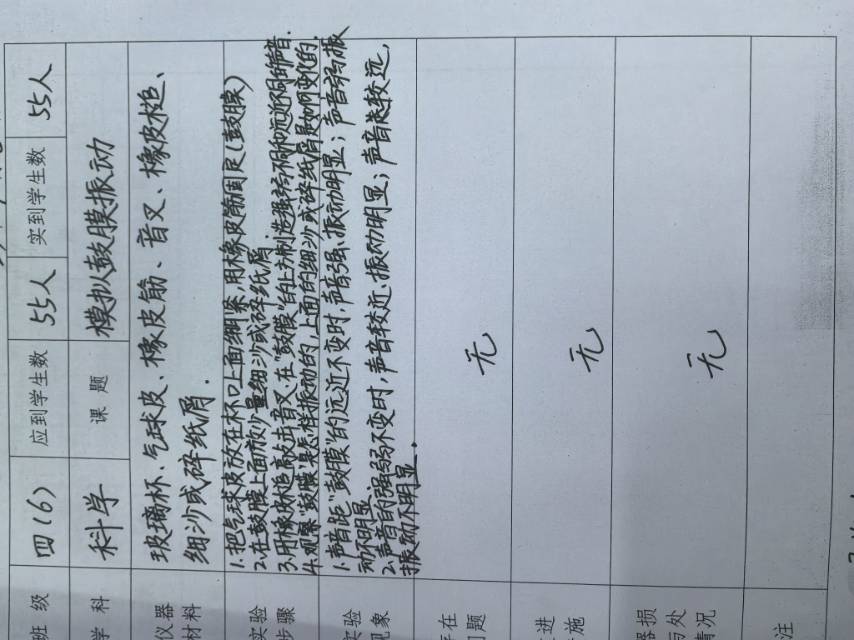 班 级 四(6) 应到学生数 55人 实到学生数 55人
学 科 科学 课 题 模拟鼓膜振动
仪器 玻璃杯、气球皮、橡皮筋、音叉、橡皮槌、
材料 细沙或碎纸屑.
实验 1.把气球皮放在杯口上面绷紧,用橡皮筋固定(鼓膜)
步骤 2.在鼓膜上面放少量细沙或碎纸屑
3.用橡皮槌敲击音叉,在"鼓膜"的上方制造强弱不同和远近不同的声音.
4.观察"鼓膜"是怎样振动的,上面的细沙或碎纸屑是如何变化的.
实验 1.声音距"鼓膜"的远近不变时,声音强、振动明显;声音弱振
现象 动不明显.
2.声音的强弱不变时,声音较近、振动明显;声音较远,
振动不明显.
存在
问题 无
改进
措施 无
器损
与处 无
情况
注